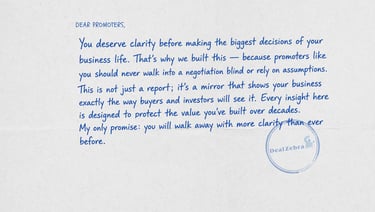 DEAR PROMOTERS,
You deserve clarity before making the biggest decisions of your
business life. That's why we built this — because promoters like
you should never walk into a negotiation blind or rely on assumptions.
This is not just a report; it's a mirror that shows your business
exactly the way buyers and investors will see it. Every insight here
is designed to protect the value you've built over decades.
My only promise: you will walk away with more clarity than ever
before.
DealZebra